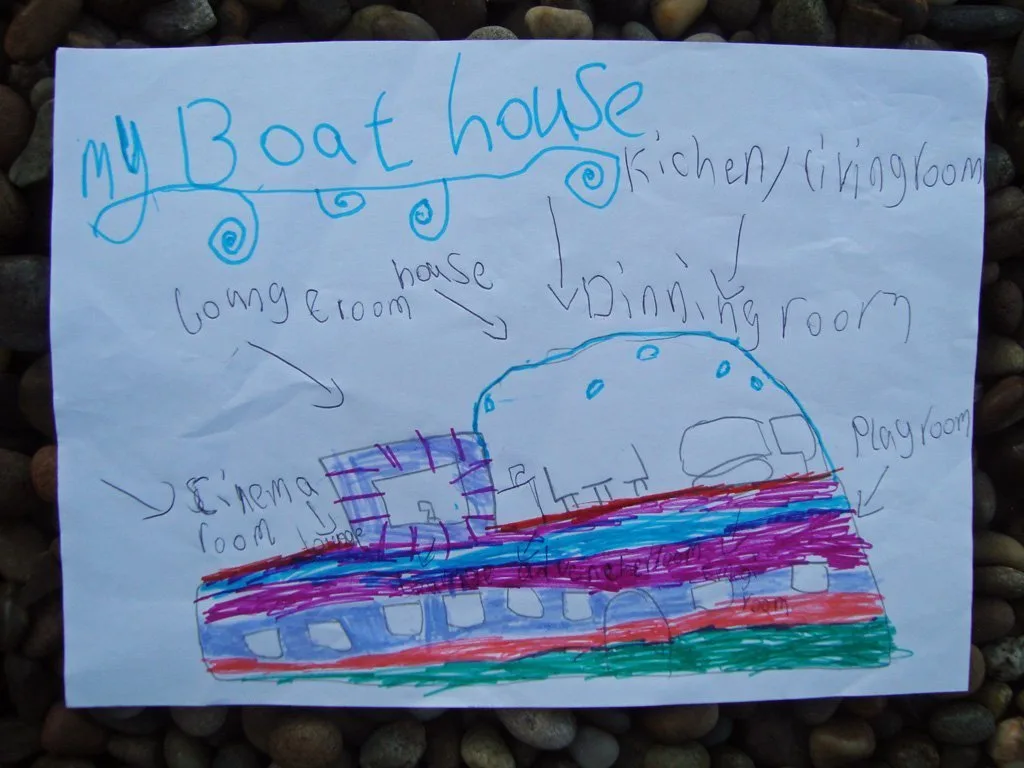 my Boat house
Kichen/livingroom
house
Loungeroom
Dinning room
Playroom
Cinema
room
Lounge
room